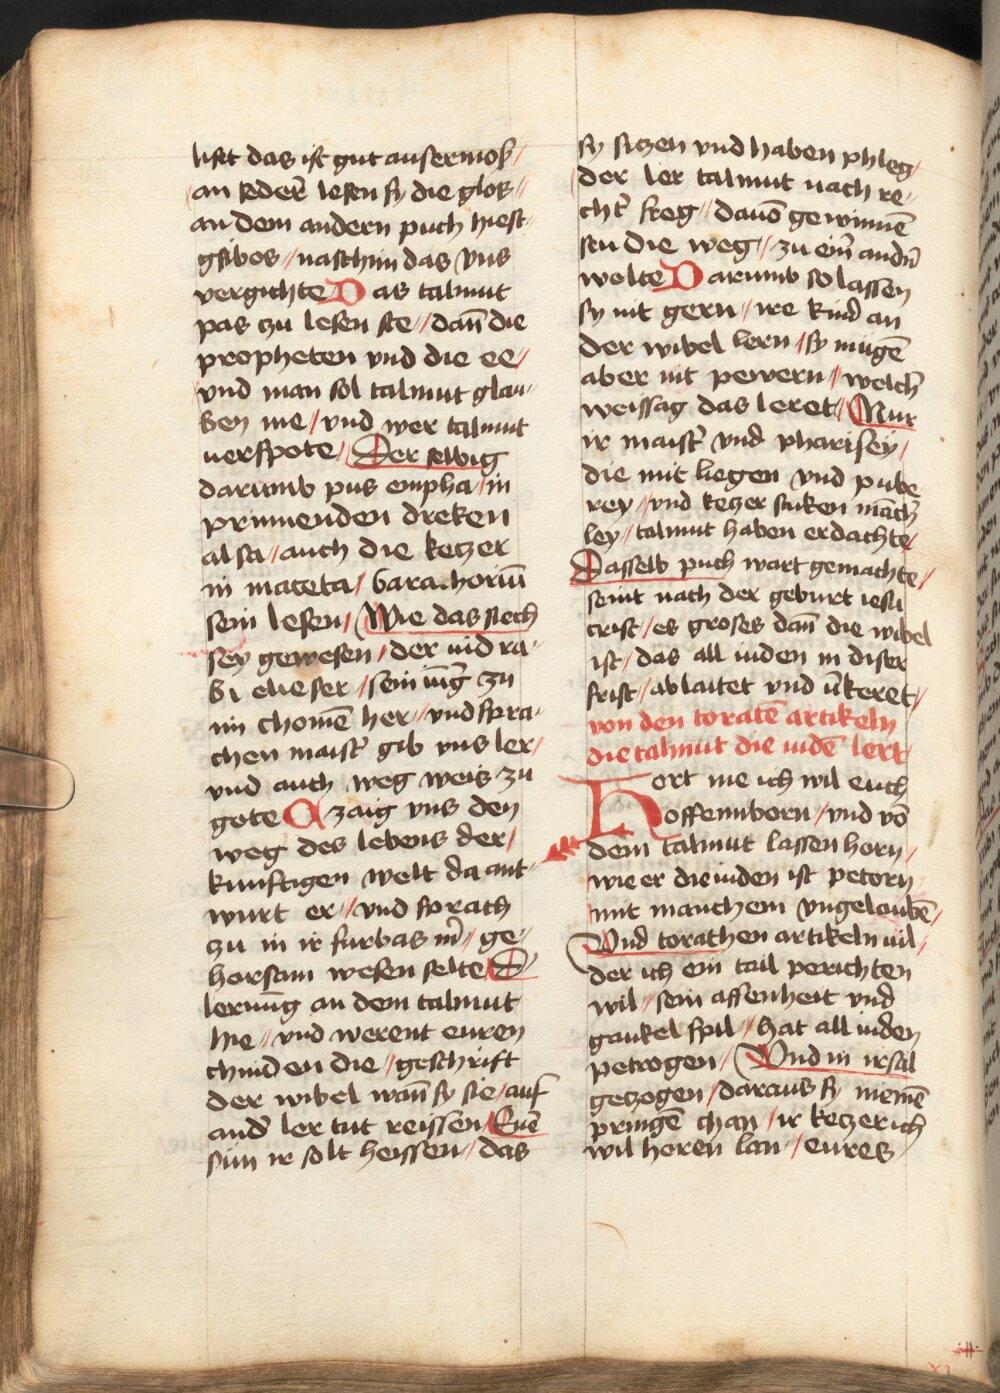 list das ist gut ausermosß /
an iederē lesen sy die gloß //
an dem andern puch hiest
gsibos // naschim das vns
vergichte Das talmut
pas czu lesen ste // dan̄ die
propheten vnd die ee /
vnd man sol talmut glau-
ben me / vnd wer talmut
verspote / Der selbig
darumb pus empha / in
prinnenden dreken
alsa / auch die keczer
in maceta / bara. horiū
sein lesen / Wie das siech
sey gewesen / der iud ra-
bi elieser / sein iūḡ zu
im chomē her // vnd spra-
chen maist' gib vns ler /
vnd auch weg weis zu
gote Czaig vns den
weg des lebens der /
kunftigen welt da ant-
wurt er // vnd sprach
zu in ir furbas m̄ / ge-
horsam wesen selte / D'
lernūg an dem talmut
hie // vnd werent euren
chinden die / geschrift
der wibel wan̄ sy sie / auf
and' ler tut reissen / Euē
sün ir solt heissen // das
sy siczen vnd haben phleg /
der ler talmut nach re-
cht' freg // dauō gewinnē
sen die weg // zu ein̄ andn̄
welte Darumb so lassen
sy nit gern // ire kind an
der wibel lern / sy mügē
aber nit pewern // welch'
weissag das leret / Nur
ir maist' vnd pharisey /
die mit liegen vnd pube
rey // vnd keczer stuken māch'
ley // talmut haben erdachte /
Dasselb puch wart gemachte /
seint nach der geburt iesu
crist // es groses dan̄ die wibel
ist / das all iuden in diser
frist / ablaitet vnd v̄keret /
von den toratē artikeln
die talmut die iudē lert
Hort me ich wil euch
offemworn / vnd vō
dem talmut lassen horn /
wie er die iuden ist petorn
mit manchem vngelaubē /
Vnd torathen artikeln vil /
der ich ein tail perichten
wil // sein affenheit vnd
gaukel spil // hat all iuden
petrogen / Vnd in irsal
geczogen / daraus sy niemē
pringē chan / ir keczer ich
wil horen lan / eures